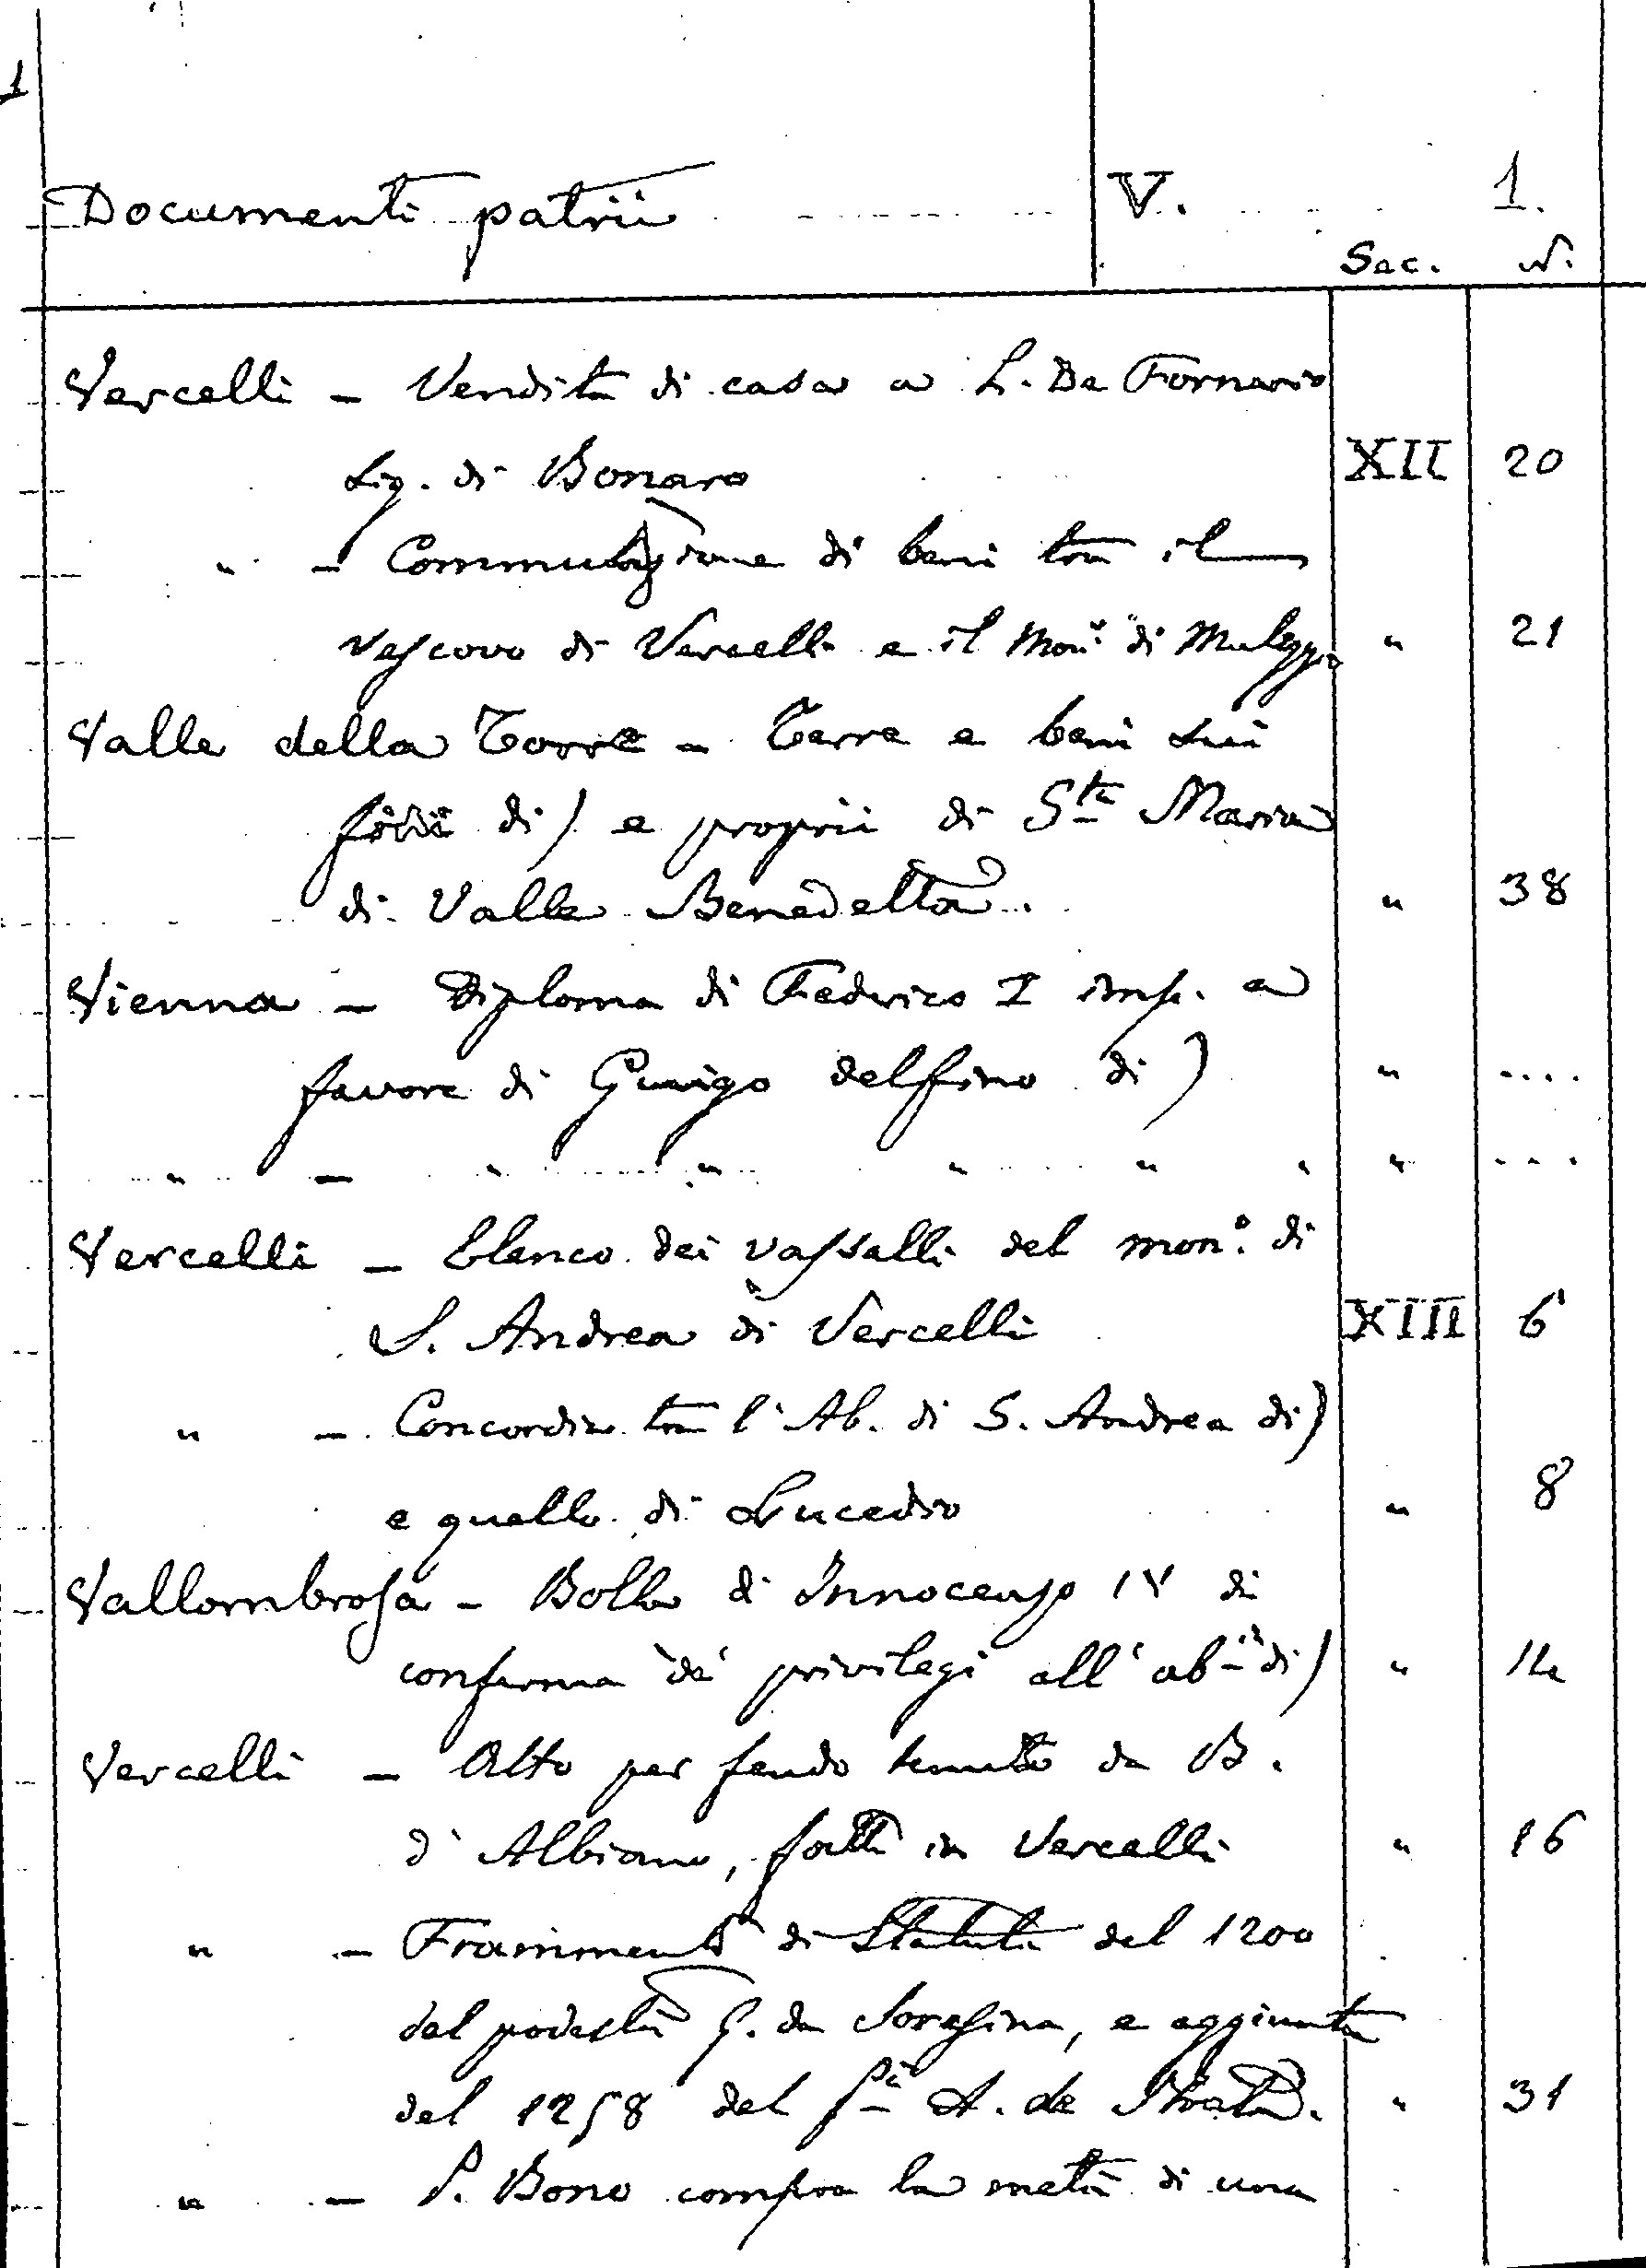 1
Documenti patrii V. 1.
Sec. N.
Vercelli - Vendita di casa a L. De Fornario
Sig. di Bonaro XII 20
" - Commutazione di beni tra il
Vescovo di Vercelli e il Mon.º di Muleggio " 21
Valle della Torre - Terre e beni
di) e proprii di Sta Maria
di Valle Benedetta. " 38
Vienna - Diploma di Federico I imp. a
favore di Guvigo delfino di) " ....
" - " " " " " " ...
Vercelli - Elenco dei vassalli del mon.º di
S. Andrea di Vercelli XIII 6
" - Concordia tra l'Ab. di S. Andrea di)
e quello di Lucedio " 8
Vallombrosa - Bolla di Innocenzo IV di
conferma de' privilegi all' ab.ia di) " 14
Vercelli - Atto per feudo tenuto da B.
d'Albiano, fatto in Vercelli " 16
" - Frammenti di Statuti del 1200
del podestà G. da Soresina, e aggiunta
del 1258 del pà A. de Strata. " 31
" - P. Bono compra la metà di una